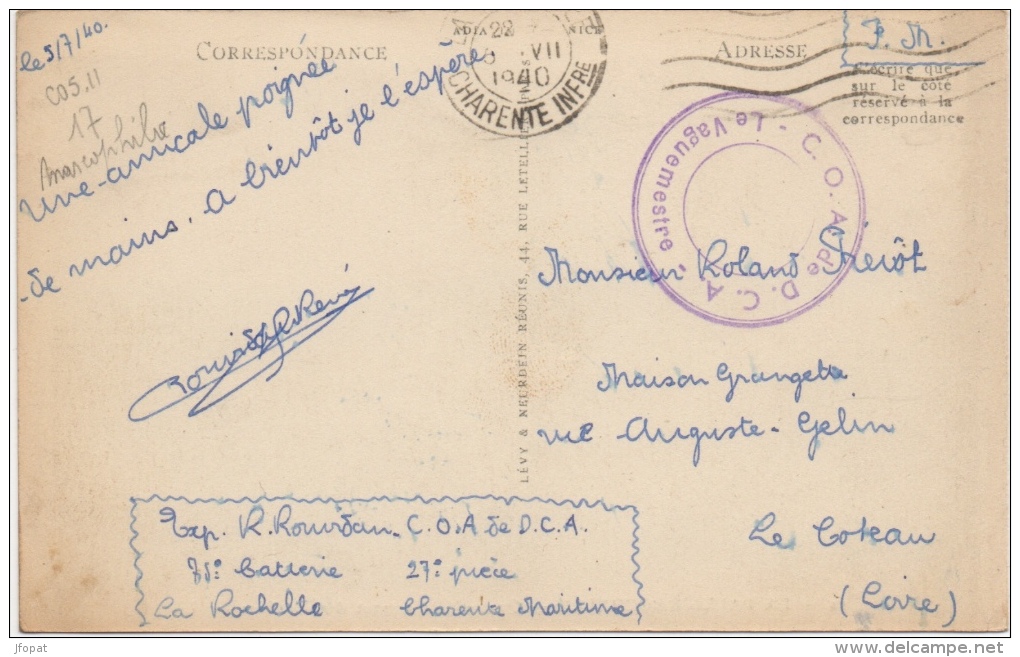 le 5/7/40.
C05.11
17
Marcophilie
CORRESPONDANCE
Une amicale poignée
de mains. A bientôt je l'espère
22
VII
1940
CHARENTE INFRE
ADRESSE
F. M.
N'écrire que
sur le côté
réservé à la
correspondance
C. O. A de D. C. A. - Le Vaguemestre
Monsieur Roland
Maison Grangette
rue Auguste-Gelin
Le Coteau
(Loire)
LÉVY & NEURDEIN RÉUNIS, 44, RUE LETELLIER
Exp. R. Rourdan. C.O.A de D.C.A.
75e batterie 27e pièce
La Rochelle Charente Maritime
delcampe.net